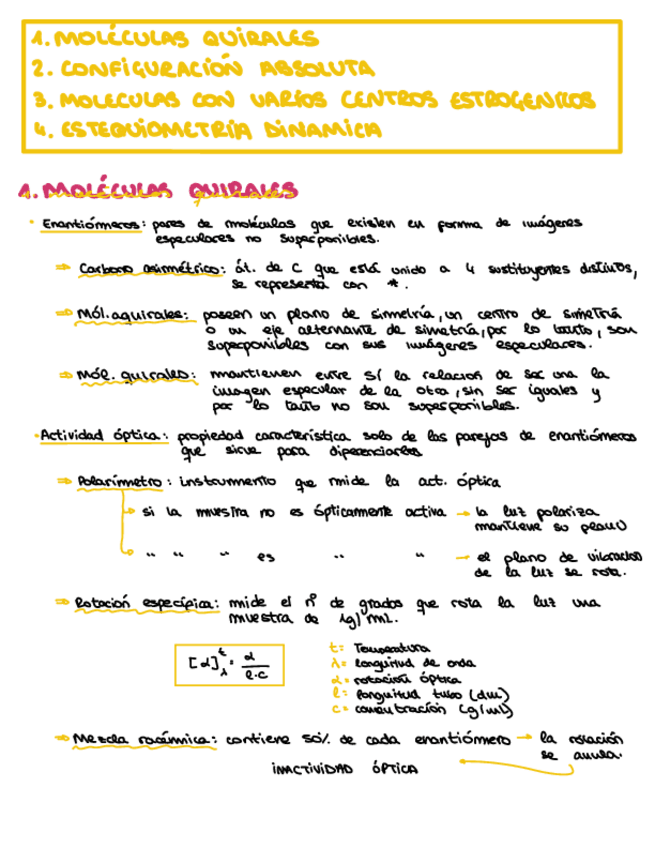 1. MOLÉCULAS QUIRALES
2. CONFIGURACIÓN ABSOLUTA
3. MOLECULAS CON VARIOS CENTROS ESTROGENICOS
4. ESTEQUIOMETRÍA DINAMICA
1. MOLÉCULAS QUIRALES
· Enantiómeros: pares de moléculas que existen en forma de imágenes
especulares no superponibles.
⇒ Carbono asimétrico: át. de C que está unido a 4 sustituyentes distintos,
se representa con *.
⇒ Mól. aquirales: poseen un plano de simetría, un centro de simetría
o un eje alternante de simetría, por lo tanto, son
superponibles con sus imágenes especulares.
⇒ Mól. quirales: mantienen entre sí la relacion de ser una la
imagen especular de la otra, sin ser iguales y
por lo tanto no son superponibles.
· Actividad óptica: propiedad característica solo de las parejas de enantiómeros
que sirve para diferenciarlos
⇒ Polarímetro: instrumento que mide la act. óptica
si la muestra no es ópticamente activa → la luz polariza
mantiene su plano
" " " es " " → el plano de vibracion
de la luz se rota.
⇒ Rotación específica: mide el nº de grados que rota la luz una
muestra de 1g/mL.
[α]ᵗλ = α / l·c
t = Temperatura
λ = longuitud de onda
α = rotación óptica
l = longuitud tubo (dm)
c = concentración (g/mL)
⇒ Mezcla racémica: contiene 50% de cada enantiómero → la rotación
se anula.
INACTIVIDAD ÓPTICA